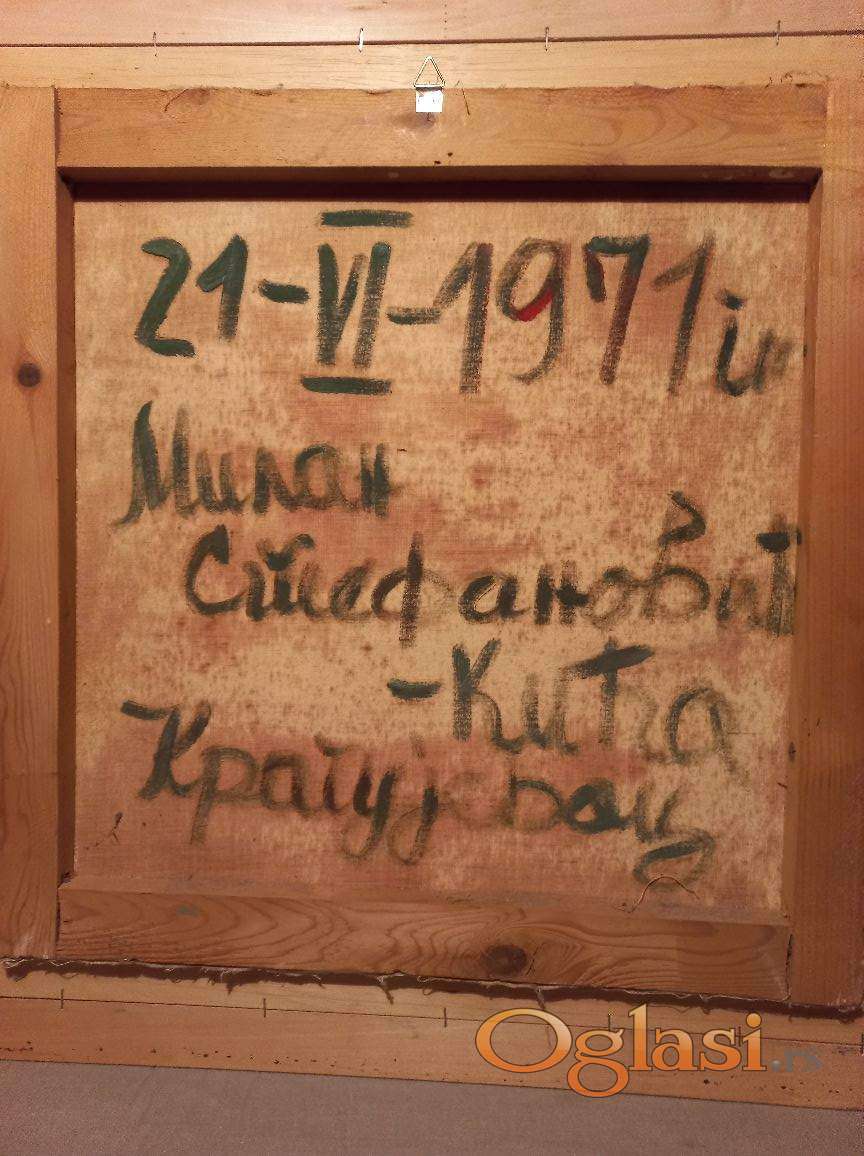 21-VI-1971
Милан
Стефановић
-Кића
Крагујевац
Oglasi.rs